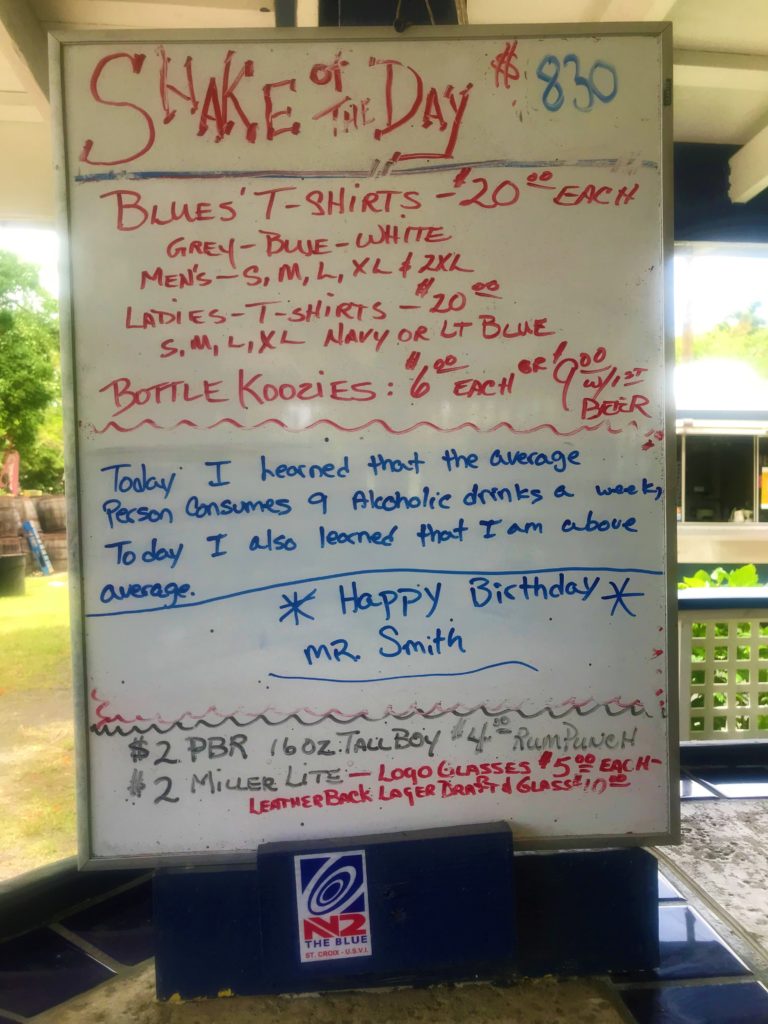 SHAKE OF THE DAY $ 830
BLUES' T-SHIRTS - $20 00 EACH
GREY - BLUE - WHITE
MEN'S - S, M, L, XL & 2XL
LADIES - T-SHIRTS - $20 00
S, M, L, XL NAVY OR LT BLUE
BOTTLE KOOZIES: $6 00 EACH OR $9 00 W/1ST BEER
Today I learned that the average
Person Consumes 9 Alcoholic drinks a week,
Today I also learned that I am above
average.
* Happy Birthday *
MR. Smith
$2 PBR 16OZ. TALL BOY $4 00 RUM PUNCH
$2 MILLER LITE - LOGO GLASSES $5 00 EACH -
LEATHERBACK LAGER DRAFT & GLASS $10 00
N2
THE BLUE
ST. CROIX - U.S.V.I.